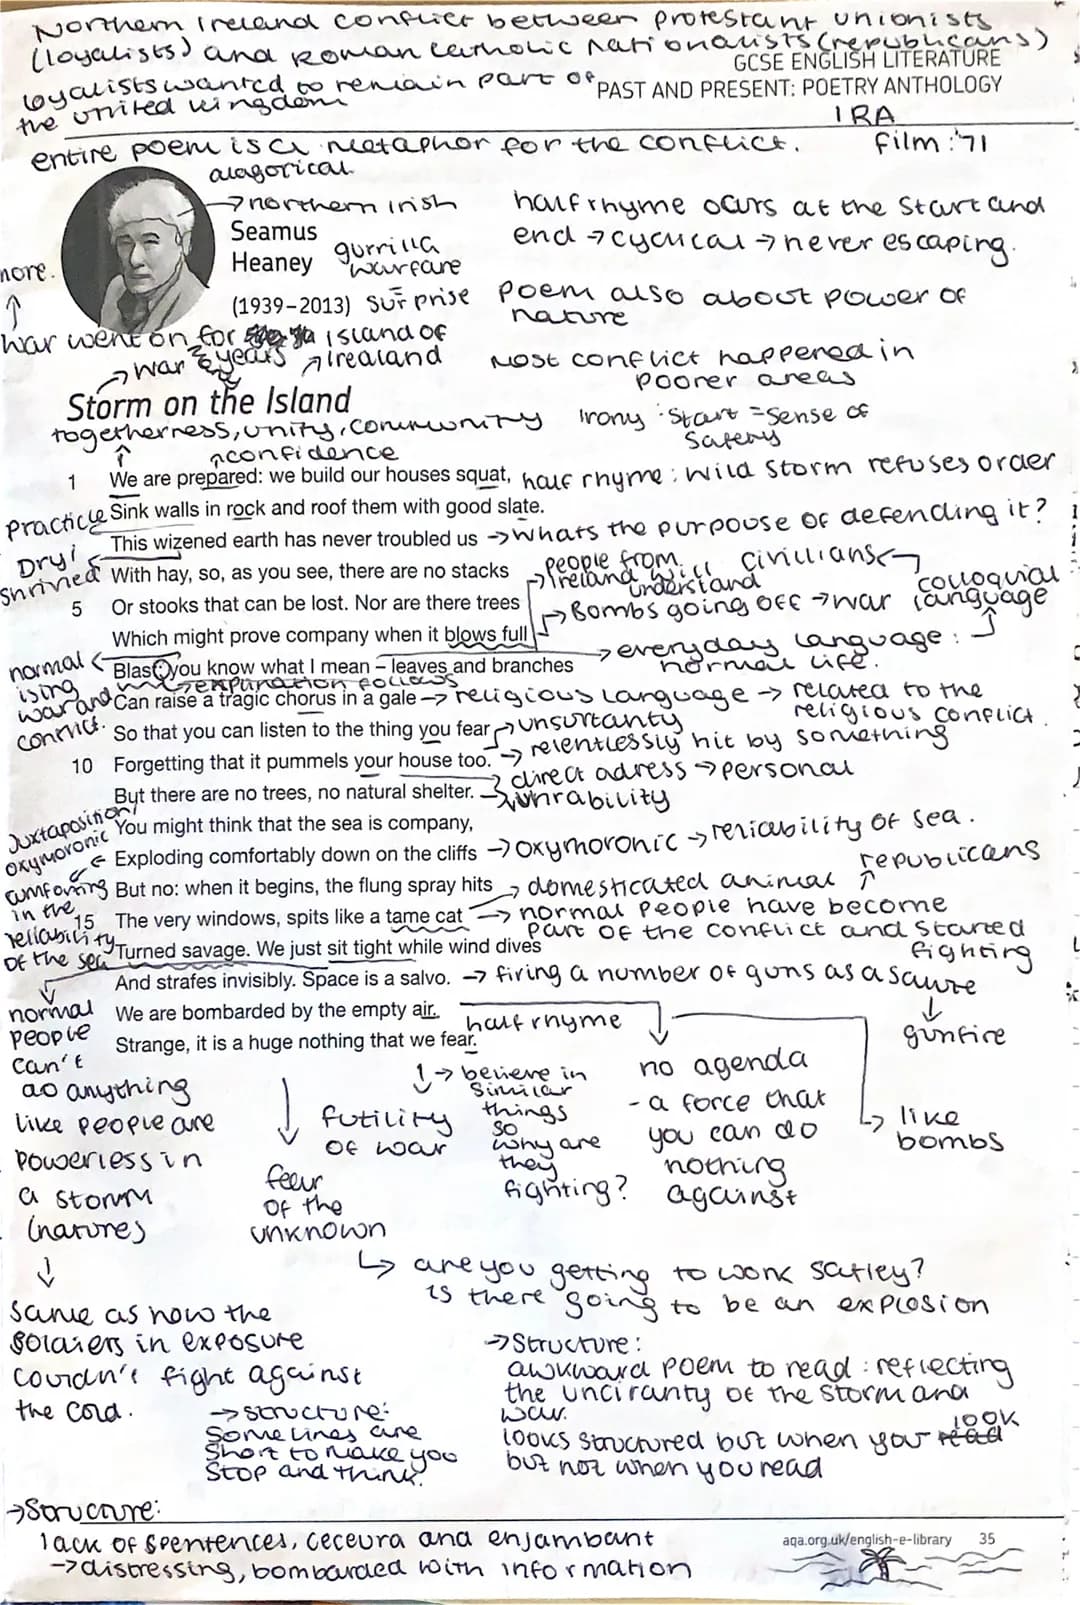 Northern Ireland conflict between protestant unionists
(loyalists) and Roman catholic nationalists (republicans)
GCSE ENGLISH LITERATURE
loyalists wanted to remain part of
PAST AND PRESENT: POETRY ANTHOLOGY
the united kingdom
IRA
entire poem is a metaphor for the conflict.
film: '71
alagorical
→ northern irish
half rhyme ocurs at the start and
Seamus
end → cyclical → never escaping.
Heaney
gurrilla
warfare
more.
(1939–2013)
surprise
poem also about power of
nature
war went on for
island of
years
Irealand
→ war
Most conflict happened in
poorer areas
Storm on the Island
togetherness, unity, community
Irony: start = sense of
safety
confidence
1 We are prepared: we build our houses squat,
half rhyme: wild storm refuses order
practicle
Sink walls in rock and roof them with good slate.
This wizened earth has never troubled us
→ whats the purpouse of defending it?
Dry/
shrivled
With hay, so, as you see, there are no stacks
→ people from
Ireland will
understand
civillians
colloquial
language
5 Or stooks that can be lost. Nor are there trees
→ Bombs going off → war
Which might prove company when it blows full
→ everyday language:
normal life.
normal
ising
war and
conflict.
Blast: you know what I mean – leaves and branches
→ explination follows
Can raise a tragic chorus in a gale
→ religious language → related to the
religious conflict.
So that you can listen to the thing you fear
→ unsurtanty
10 Forgetting that it pummels your house too.
→ relentlessly hit by something
→ direct adress → personal
But there are no trees, no natural shelter.
Juxtaposition/
oxymoronic
You might think that the sea is company,
Exploding comfortably down on the cliffs
→ oxymoronic → reliability of sea.
republicans
comforting
in the
reliability
of the sea
But no: when it begins, the flung spray hits
→ domesticated animal
15 The very windows, spits like a tame cat
→ normal people have become
part of the conflict and started
fighting
Turned savage. We just sit tight while wind dives
And strafes invisibly. Space is a salvo.
→ firing a number of guns as a
gunfire
We are bombarded by the empty air.
half rhyme
Strange, it is a huge nothing that we fear.
normal
people
can't
do anything
like people are
powerless in
a storm
(nature)
same as how the
soldiers in exposure
couldn't fight against
the cold.
futility
of war
fear
of the
unknown
→ believe in
similar
things
so
why are
they
fighting?
no agenda
- a force that
you can do
nothing
against
like
bombs
are you getting to work safley?
is there going to be an explosion
→ structure:
some lines are
short to make you
stop and think.
→ Structure:
awkward poem to read: reflecting
the unciranty of the storm and
war.
looks structured but when you look
but not when you read
→ Structure:
lack of spentences, ceceura and enjambant
→ distressing, bombarded with information
aqa.org.uk/english-e-library 35